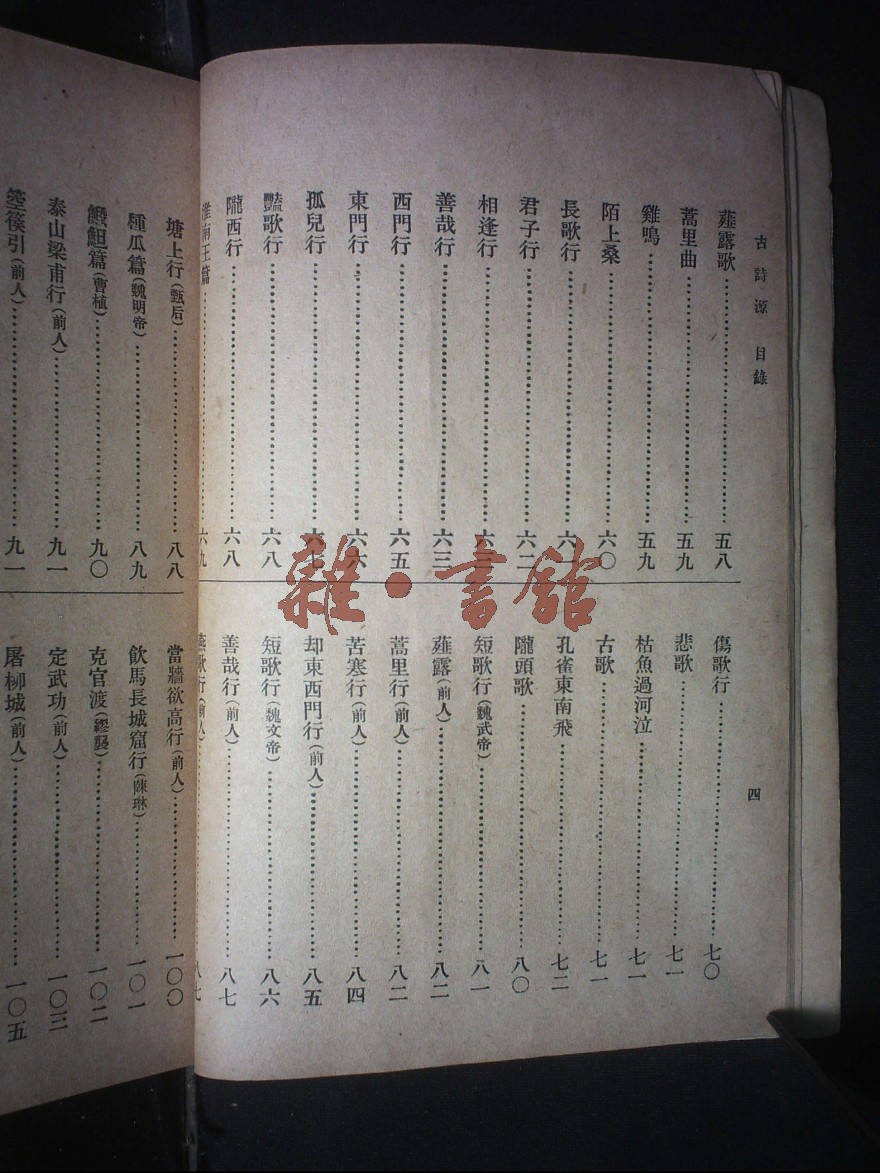 古詩源 目錄
四
薤露歌……五八
蒿里曲……五九
雞鳴……五九
陌上桑……六〇
長歌行……六一
君子行……六二
相逢行……六三
善哉行……六三
西門行……六五
東門行……六六
孤兒行……六七
豔歌行……六八
隴西行……六八
淮南王篇……六九
傷歌行……七〇
悲歌……七一
枯魚過河泣……七一
古歌……七一
孔雀東南飛……七二
隴頭歌……八〇
短歌行(魏武帝)……八一
薤露(前人)……八二
蒿里行(前人)……八二
苦寒行(前人)……八四
却東西門行(前人)……八五
短歌行(魏文帝)……八六
善哉行(前人)……八七
燕歌行(前人)……八七
塘上行(甄后)……八八
種瓜篇(魏明帝)……八九
䱇篇(曹植)……九〇
泰山梁甫行(前人)……九一
箜篌引(前人)……九一
當牆欲高行(前人)……一〇〇
飲馬長城窟行(陳琳)……一〇一
克官渡(繆襲)……一〇二
定武功(前人)……一〇三
屠柳城(前人)……一〇五
雜·書館